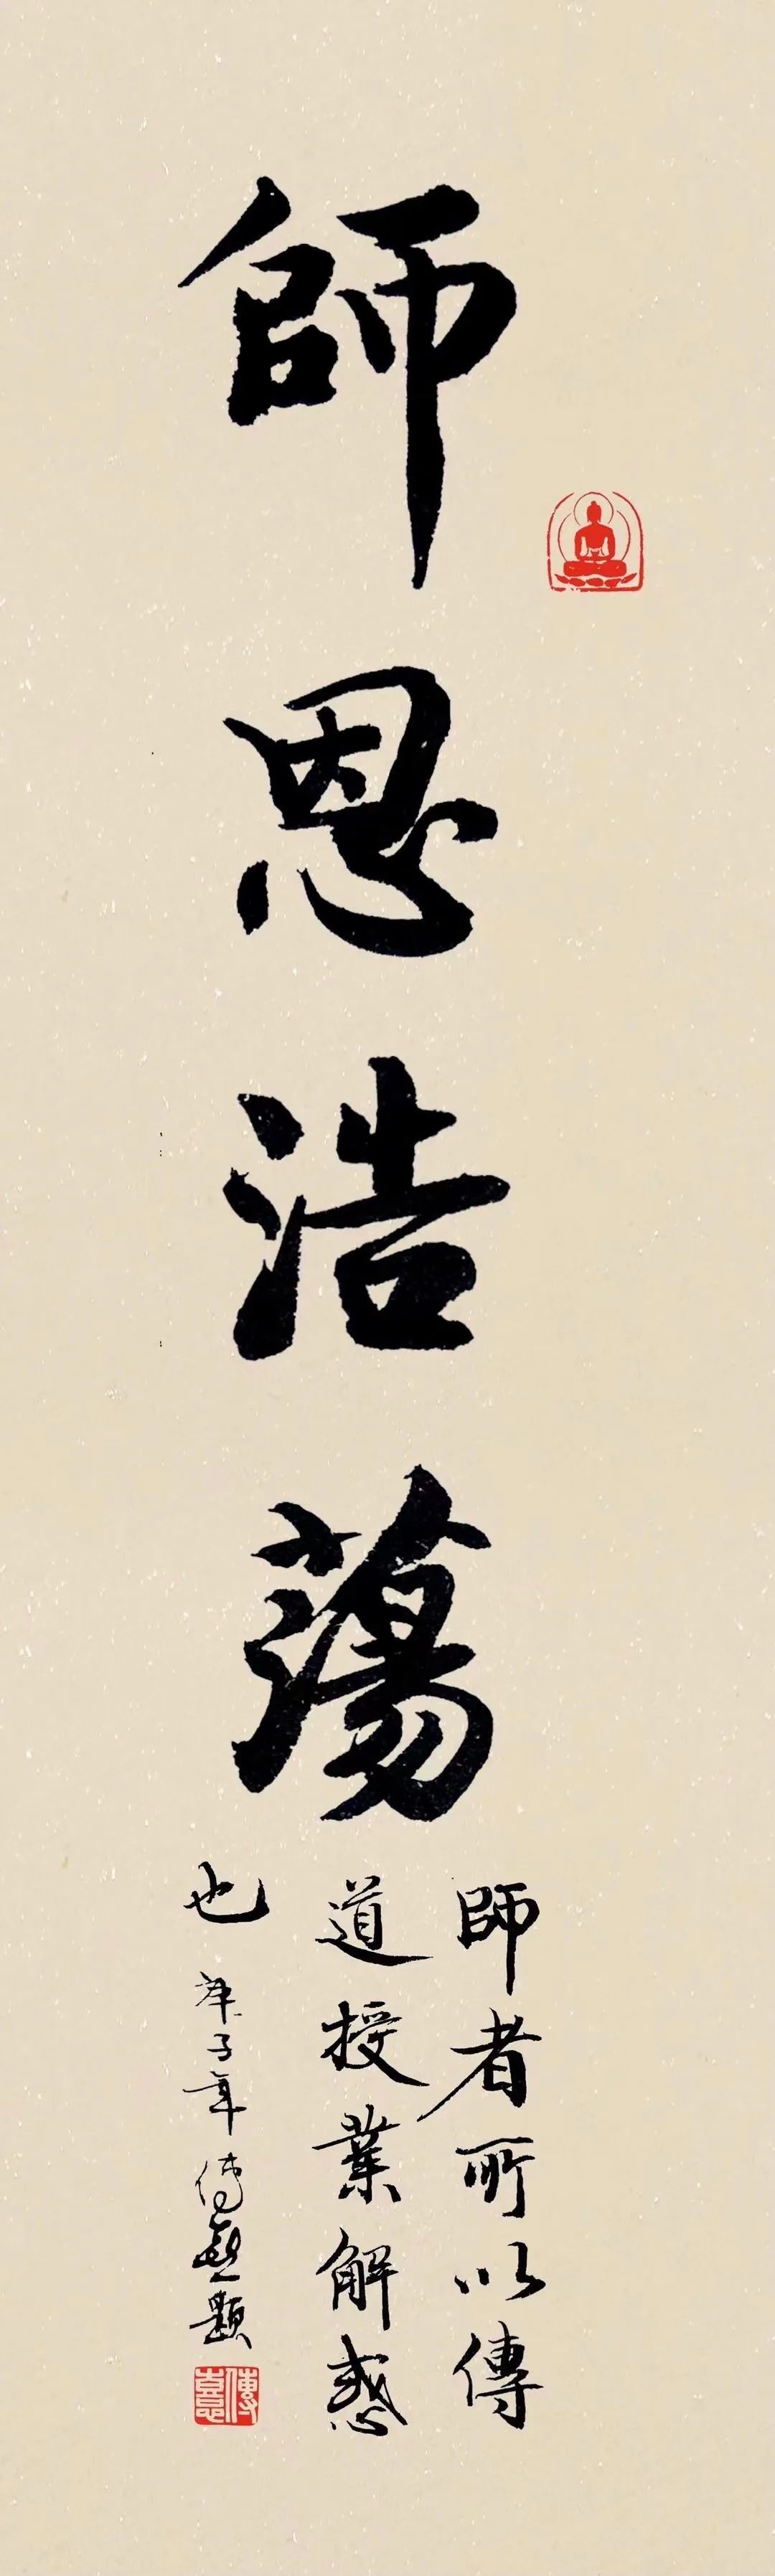 師恩浩蕩
師者所以傳
道授業解惑
也 庚子年傳憙題
傳憙